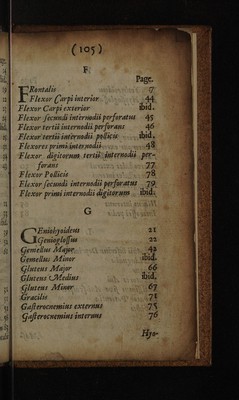 (105)
F
Page.
FRontalis 7
Flexor Carpi interior 44
Flexor Carpi exterior ibid.
Flexor secundi internodii perforatus 45
Flexor tertii internodii perforans 46
Flexor tertii internodii pollicis ibid.
Flexores primi internodii 48
Flexor digitorum tertii internodii per-
forans 77
Flexor Pollicis 78
Flexor secundi internodii perforatus 79
Flexor primi internodii digitorum ibid.
G
GEniohyoideus 21
Genioglossus 22
Gemellus Major 42
Gemellus Minor ibid.
Gluteus Major 66
Gluteus Medius ibid.
Gluteus Minor 67
Gracilis 71
Gasterocnemius externus 75
Gasterocnemius internus 76
Hyo-